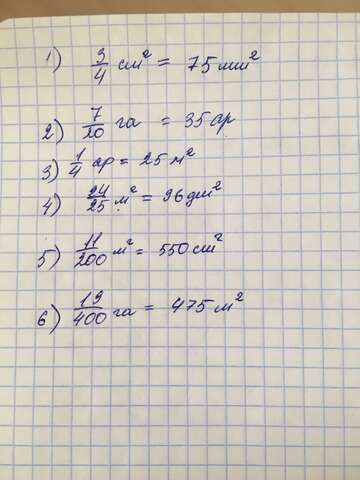 1) 3/4 см² = 75 мм²
2) 7/20 га = 35 ар
3) 1/4 ар = 25 м²
4) 24/25 м² = 96 дм²
5) 11/200 м² = 550 см²
6) 19/400 га = 475 м²